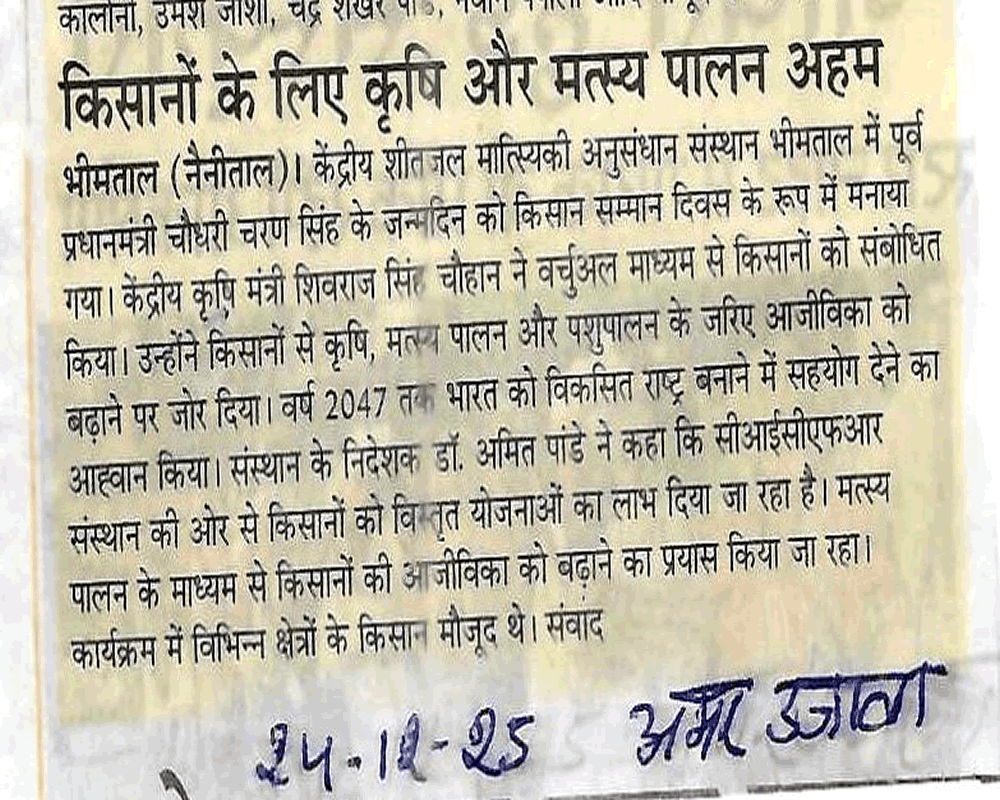 कालोनी, उमेश जोशी, चंद्र शेखर
किसानों के लिए कृषि और मत्स्य पालन अहम
भीमताल (नैनीताल)। केंद्रीय शीतजल मात्स्यिकी अनुसंधान संस्थान भीमताल में पूर्व
प्रधानमंत्री चौधरी चरण सिंह के जन्मदिन को किसान सम्मान दिवस के रूप में मनाया
गया। केंद्रीय कृषि मंत्री शिवराज सिंह चौहान ने वर्चुअल माध्यम से किसानों को संबोधित
किया। उन्होंने किसानों से कृषि, मत्स्य पालन और पशुपालन के जरिए आजीविका को
बढ़ाने पर जोर दिया। वर्ष 2047 तक भारत को विकसित राष्ट्र बनाने में सहयोग देने का
आह्वान किया। संस्थान के निदेशक डॉ. अमित पांडे ने कहा कि सीआईसीएफआर
संस्थान की ओर से किसानों को विस्तृत योजनाओं का लाभ दिया जा रहा है। मत्स्य
पालन के माध्यम से किसानों की आजीविका को बढ़ाने का प्रयास किया जा रहा।
कार्यक्रम में विभिन्न क्षेत्रों के किसान मौजूद थे। संवाद
24-12-25 अमर उजाला